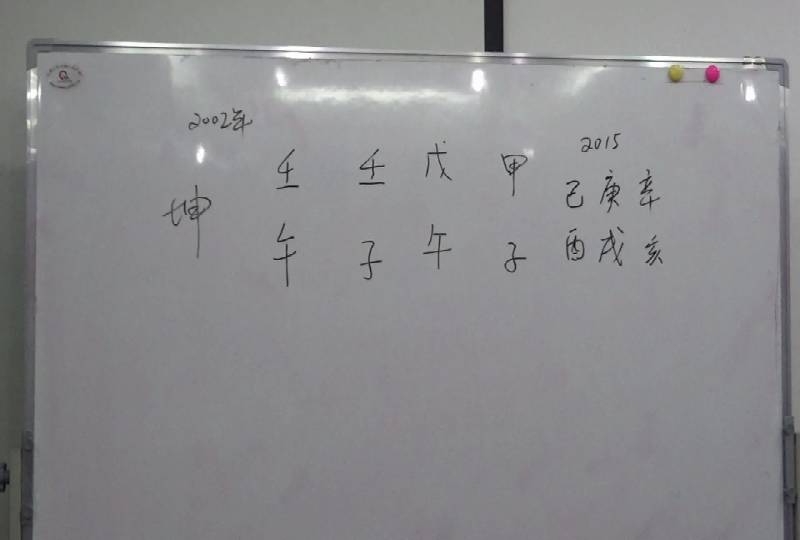 2002年
2015
壬 壬 戊 甲 己 庚 辛
坤
午 子 午 子 酉 戌 亥